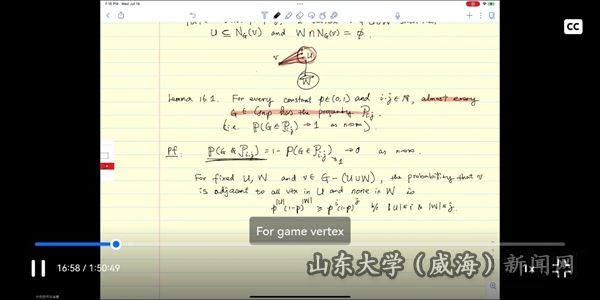 7:16 PM Wed Jul 16
CC
U ⊆ N_G(v) and W∩N_G(v) = ∅.
v U
W
Lemma 16.1. For every constant p∈(0,1) and i,j∈ℕ, almost every
G ∈ G_{n,p} has the property P_{i,j}.
(i.e. ℙ(G∈P_{i,j}) → 1 as n→∞).
Pf: ℙ(G∉P_{i,j}) = 1- P(G∈P_{i,j}) → 0 as n→∞.
→1
For fixed U, W and v∈ G-(U∪W), the probability that v
is adjacent to all vtx in U and none in W is
p^{|U|}(1-p)^{|W|} ≥ p^i(1-p)^j b/c |U|≤i & |W|≤j.
For game vertex
山东大学（威海）新闻网
16:58 / 1:50:49
1x